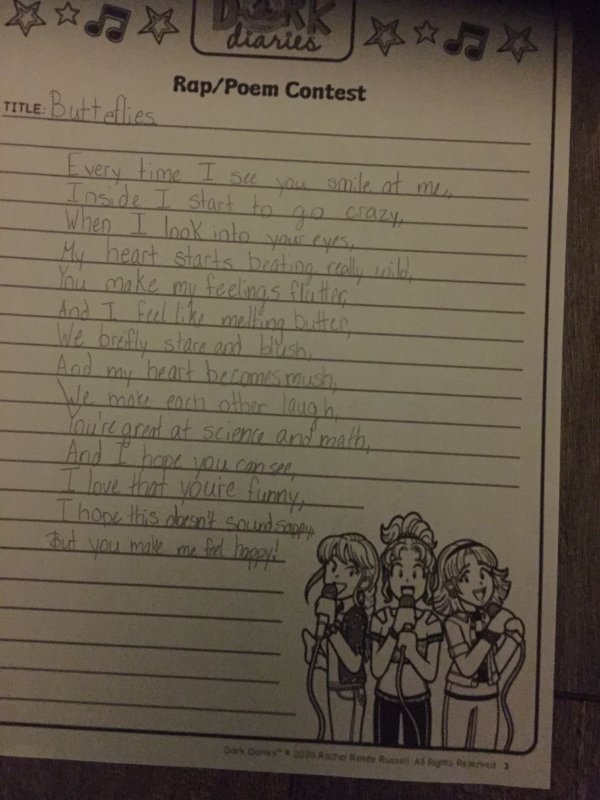 DORK
diaries
Rap/Poem Contest
TITLE: Butteflies
Every time I see you smile at me,
Inside I start to go crazy,
When I look into your eyes,
My heart starts beating really wild,
You make my feelings flutter,
And I feel like melting butter,
We brefly stare and blush,
And my heart becomes mush,
We make each other laugh,
You're great at science and math,
And I hope you can see,
I love that you're funny,
I hope this doesn't sound sappy,
But you make me feel happy!
Dork Diaries™ © 2020 Rachel Renée Russell. All Rights Reserved 3